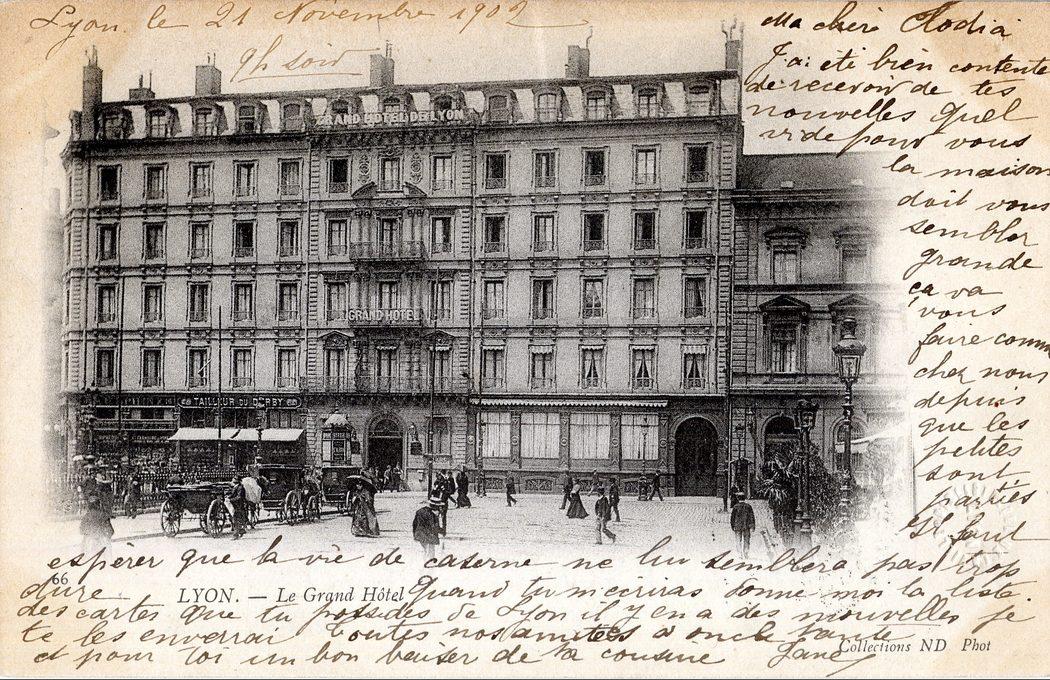 Lyon. le 21 Novembre 1902
9h soir
Ma chère Clodia
J'ai été bien contente
de recevoir de tes
nouvelles Quel
vide pour vous
la maison
doit vous
sembler
grande
ça va
vous
faire comme
chez nous
depuis
que les
petites
sont
parties
Il faut
espérer que la vie de caserne ne lui semblera pas trop
dure Quand tu m'écriras donne moi la liste
des cartes que tu possèdes de Lyon il y en a des nouvelles je
te les enverrai Toutes nos amitiés à oncle tante
et pour toi un bon baiser de ta cousine Jane
GRAND HOTEL DE LYON
GRAND HOTEL
TAILLEUR DU DERBY
66
LYON. — Le Grand Hôtel
Collections ND Phot